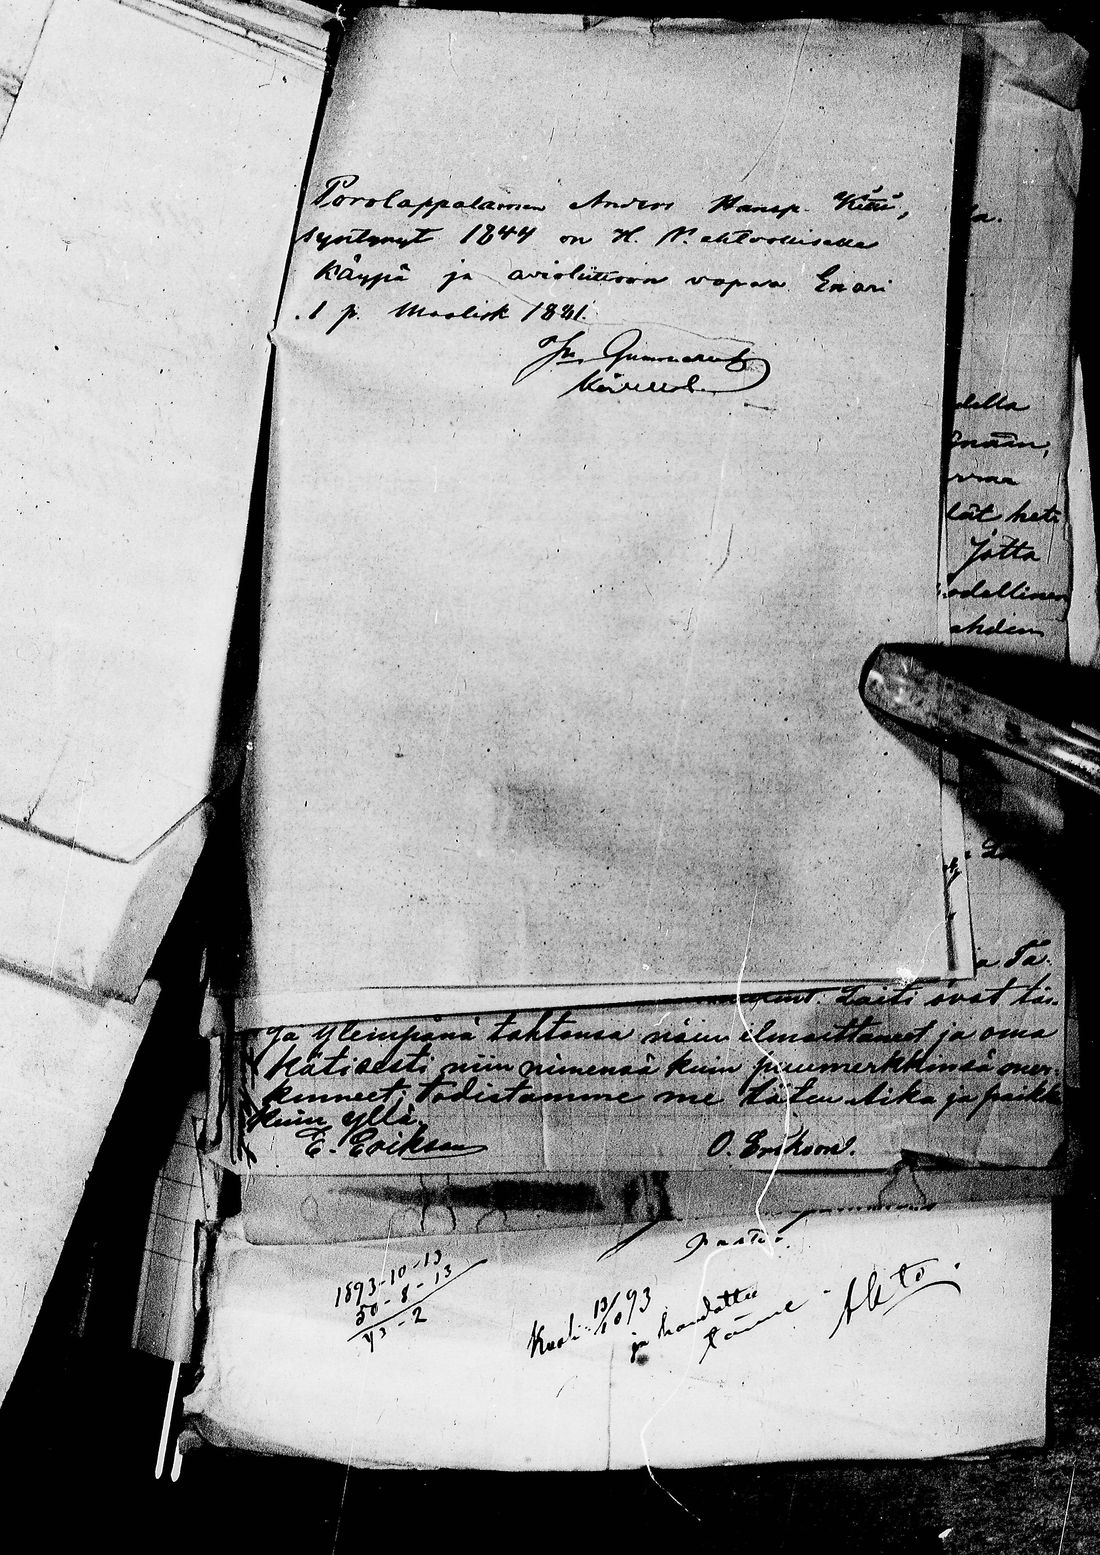 Porolappalainen Anders Hansp. Kitti,
syntynyt 1844 on H. P. ehtoollisella
käypä ja avioliittoon vapaa Enari
1 p. Maalisk 1881.
della
rraa
lät heti
Jotta
odellinen
ahden
a Ta-
Laiti ovat tä-
ja ylempänä tahtonsa näin ilmoittaneet ja oma
kätisesti niin nimensä kuin puumerkkinsä mer-
kinneet, todistamme me täten Aika ja paikka
kuin yllä.
E. Eriksen O. Erikson.
1893-10-13
50-8-13
43-2
Kuoli 13/10 93
ja haudattu
tänne